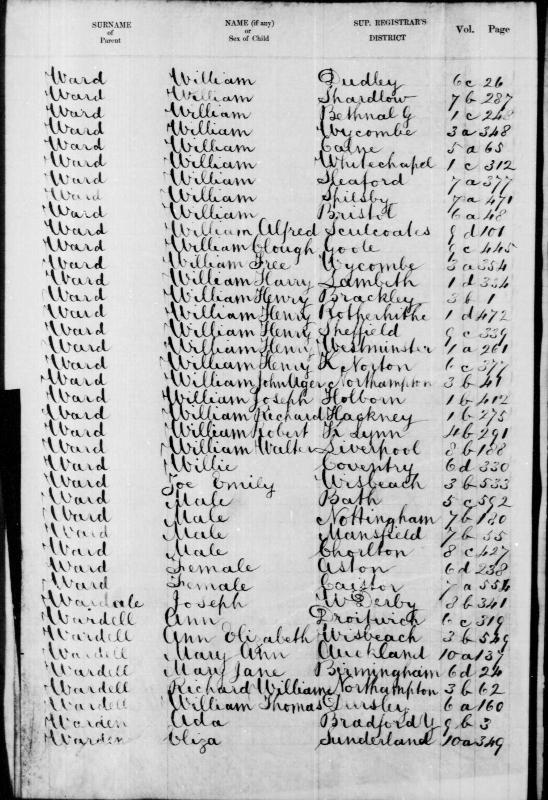 SURNAME of Parent NAME (if any) or Sex of Child SUP. REGISTRAR'S DISTRICT Vol. Page
Ward William Dudley 6 c 26
Ward William Shardlow 7 b 287
Ward William Bethnal G 1 c 248
Ward William Wycombe 3 a 348
Ward William Calne 5 a 65
Ward William Whitechapel 1 c 312
Ward William Sleaford 7 a 377
Ward William Spilsby 7 a 471
Ward William Bristol 6 a 48
Ward William Alfred Sculcoates 9 d 101
Ward William Clough Goole 9 c 445
Ward William Free Wycombe 3 a 354
Ward William Harry Lambeth 1 d 334
Ward William Henry Brackley 3 b 1
Ward William Henry Rotherhithe 1 d 472
Ward William Henry Sheffield 9 c 339
Ward William Henry Westminster 1 a 261
Ward William Henry K Norton 6 c 377
Ward William John Northampton 3 b 41
Ward William Joseph Holborn 1 b 412
Ward William Richard Hackney 1 b 275
Ward William Robert K Lynn 4 b 291
Ward William Walter Liverpool 8 b 188
Ward Willie Coventry 6 d 330
Ward Zoe Emily Wisbeach 3 b 533
Ward Male Bath 5 c 592
Ward Male Nottingham 7 b 180
Ward Male Mansfield 7 b 55
Ward Male Chorlton 8 c 427
Ward Female Aston 6 d 238
Ward Female Caistor 7 a 554
Wardale Joseph W Derby 8 b 341
Wardell Ann Droitwich 6 c 319
Wardell Ann Elizabeth Wisbeach 3 b 549
Wardell Mary Ann Auckland 10 a 137
Wardell Mary Jane Birmingham 6 d 24
Wardell Richard William Northampton 3 b 62
Wardell William Thomas Dursley 6 a 160
Warden Ada Bradford Y 9 b 3
Warden Eliza Sunderland 10 a 349